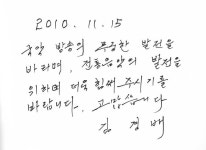 2010. 11. 15
국악 방송의 무궁한 발전을
바라며, 전통음악의 발전을
위하며 더욱 힘써 주시기를
바랍니다. 고맙습니다
김 정 배